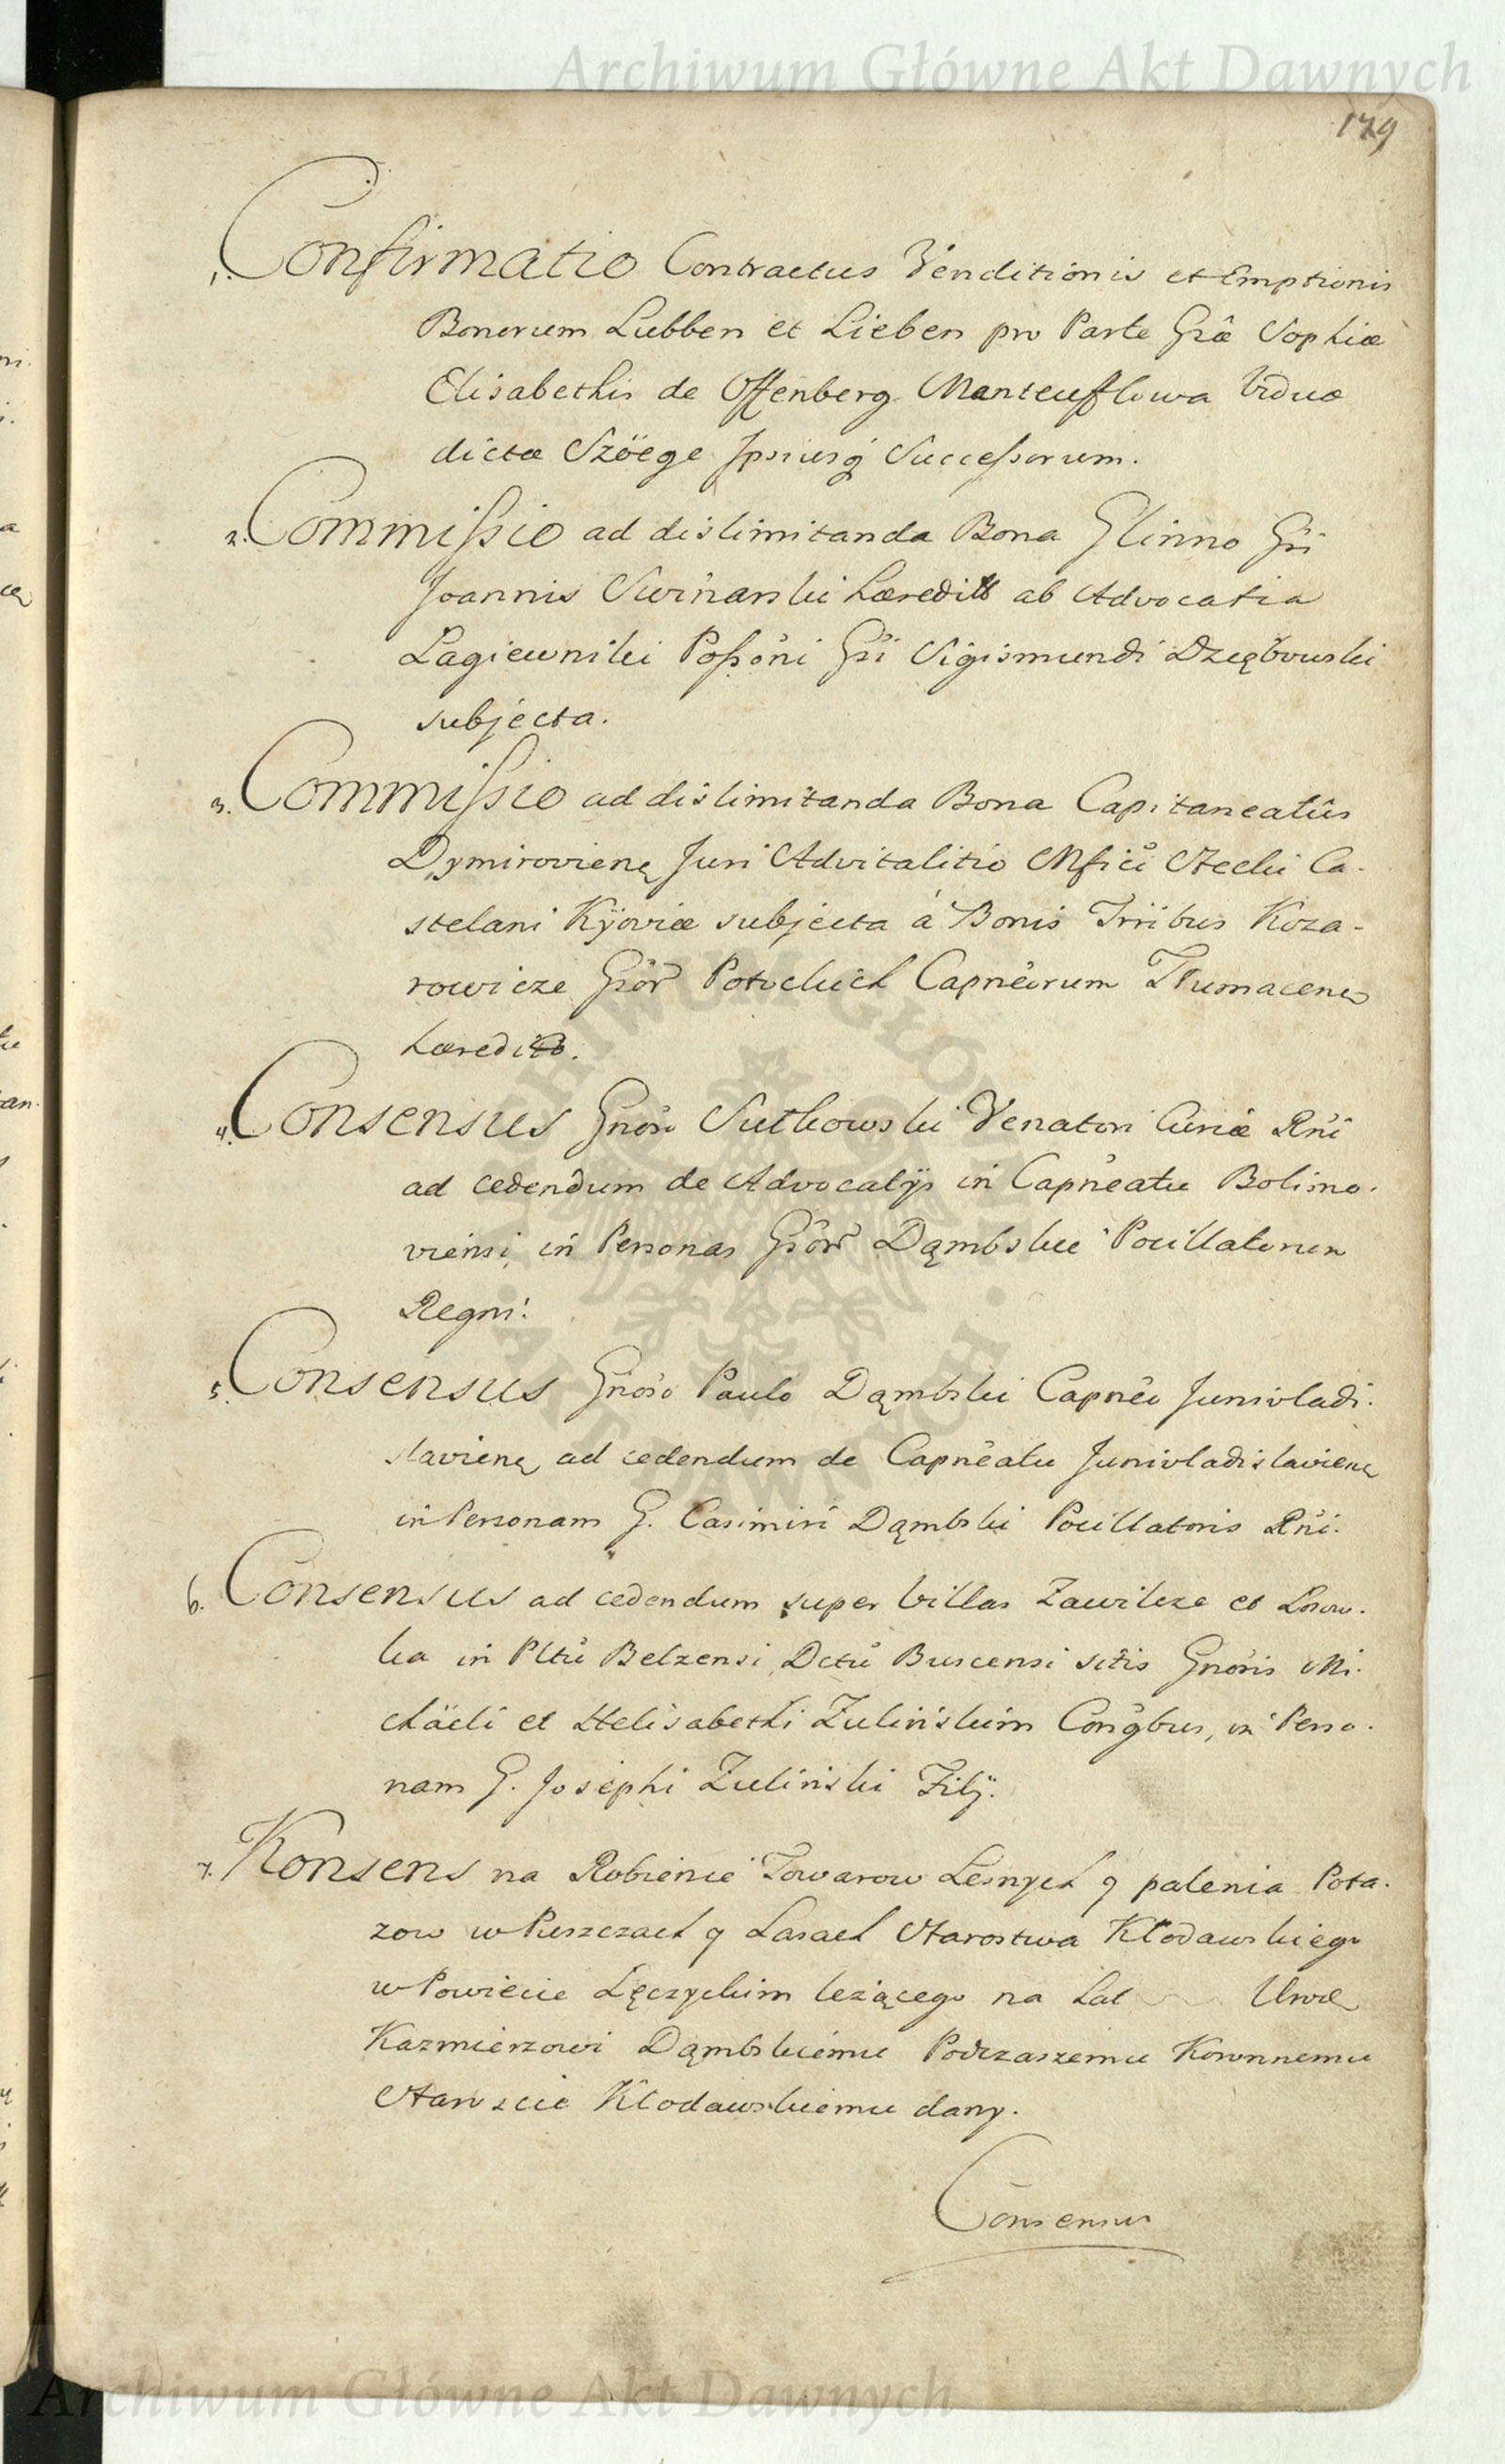 Archiwum Główne Akt Dawnych
179
1. Confirmatio Contractus Venditionis et Emptionis
Bonorum Lubben et Lieben pro Parte Gsæ Sophiæ
Elisabethis de Offenberg Manteuflowa Viduæ
dictæ Szöege Ipsiusq Successorum.
2. Commissio ad dislimitanda Bona Glinno Gsi
Joannis Swinarski hæredit ab Advocatia
Lagiewniki Possoni Gsi Sigismundi Dzębowski
subjecta.
3. Commissio ad dislimitanda Bona Capitaneatûs
Dymirovienę Juri Advitalitio Mfici Stecki Ca-
stelani Kÿoviæ subjecta á Bonis Trribus Koza-
rowicze Gsor Potockich Capneorum Tłumacenę
hæredit.
4. Consensus Gnoso Sutkowski Venatori Curiæ Rni
ad cedendum de Advocatijs in Capneatu Bolimo.
viensi, in Personas Gsor Dąmbskie Pocillatorum
Regni.
5. Consensus Gnoso Paulo Dąmbski Capneo Junivladi.
slavienę ad cedendum de Capneatu Junivladislavienę
in Personam G. Casimiri Dąmbski Pocillatoris Rni.
6. Consensus ad cedendum super Villas Zawilcze et Losow.
ka in Pltu Belzensi Dctu Buscensi sitis Gnosis Mi.
chäeli et Helisabethi Zulinskim Congbus, in Perso.
nam G. Josephi Zulinski Filij.
7. Konsens na Robienie Towarow Lesnych y palenia Pota.
zow w Puszczach y Lasach Starostwa Kłodawskiego
w Powiecie Lęczyckim leżącego na Lat Urodz
Kazmierzowi Dąmbskiemu Podczaszemu Koronnemu
Staroscie Kłodawskiemu dany.
Consensus
Archiwum Główne Akt Dawnych